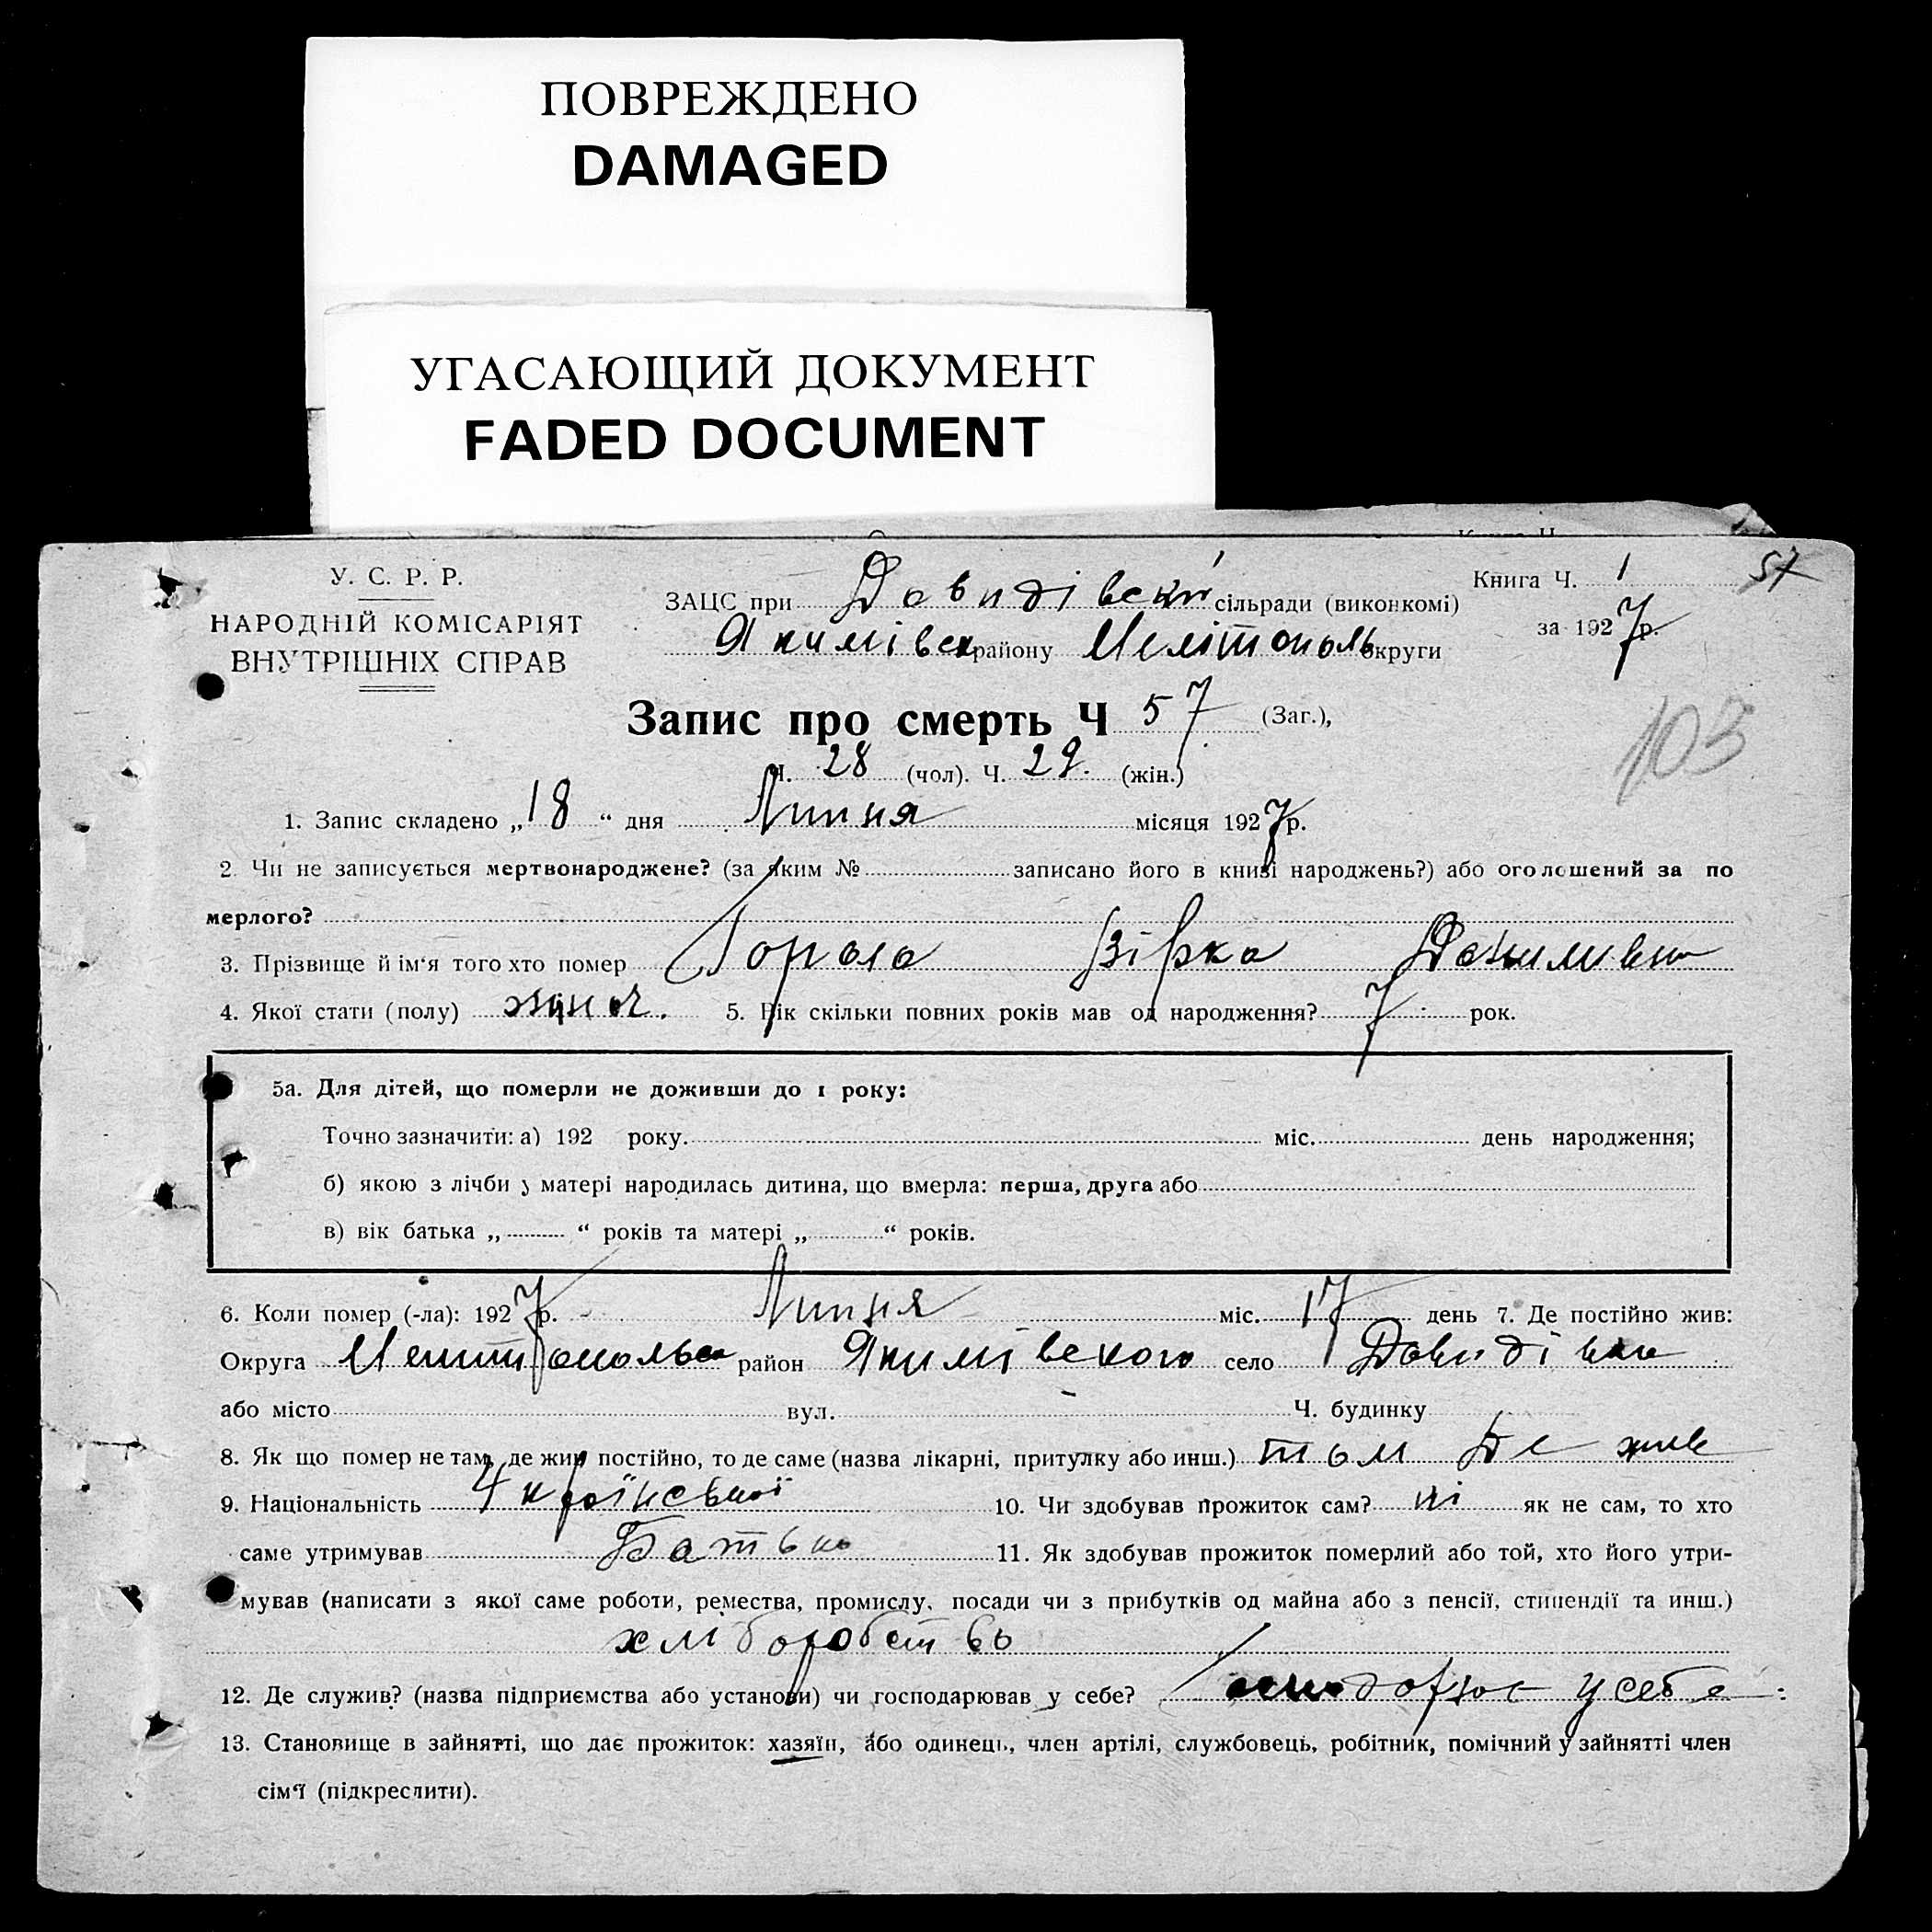 ПОВРЕЖДЕНО
DAMAGED
УГАСАЮЩИЙ ДОКУМЕНТ
FADED DOCUMENT
У. С. Р. Р.
НАРОДНІЙ КОМІСАРІЯТ
ВНУТРІШНІХ СПРАВ
ЗАЦС при Давидівскій сільради (виконкомі)
Якимівск району Мелітополь округи
Книга Ч. 1 57
за 1927 р.
Запис про смерть Ч 57 (Заг.),
Ч. 28 (чол). Ч. 29. (жін.)
103
1. Запис складено „18“ дня Липня місяця 1927 р.
2. Чи не записується мертвонароджене? (за яким № записано його в книзі народжень?) або оголошений за по
мерлого?
3. Прізвище й ім'я того хто помер Данилівна
4. Якої стати (полу) жіноч. 5. Вік скільки повних років мав од народження? 7 рок.
5а. Для дітей, що померли не доживши до 1 року:
Точно зазначити: а) 192 року. міс. день народження;
б) якою з лічби у матері народилась дитина, що вмерла: перша, друга або
в) вік батька „ “ років та матері „ “ років.
6. Коли помер (-ла): 1927 р. Липня міс. 17 день 7. Де постійно жив:
Округа район Якимівского село Давидівка
або місто вул. Ч. будинку
8. Як що помер не там, де жив постійно, то де саме (назва лікарні, притулку або инш.) там де жив
9. Національність Українській 10. Чи здобував прожиток сам? ні як не сам, то хто
саме утримував Батько 11. Як здобував прожиток померлий або той, хто його утри-
мував (написати з якої саме роботи, ремества, промислу, посади чи з прибутків од майна або з пенсії, стипендії та инш.)
хліборобство
12. Де служив? (назва підприємства або установи) чи господарював у себе? у себе
13. Становище в зайнятті, що дає прожиток: хазяїн, або одинець, член артілі, службовець, робітник, помічний у зайнятті член
сім'ї (підкреслити).